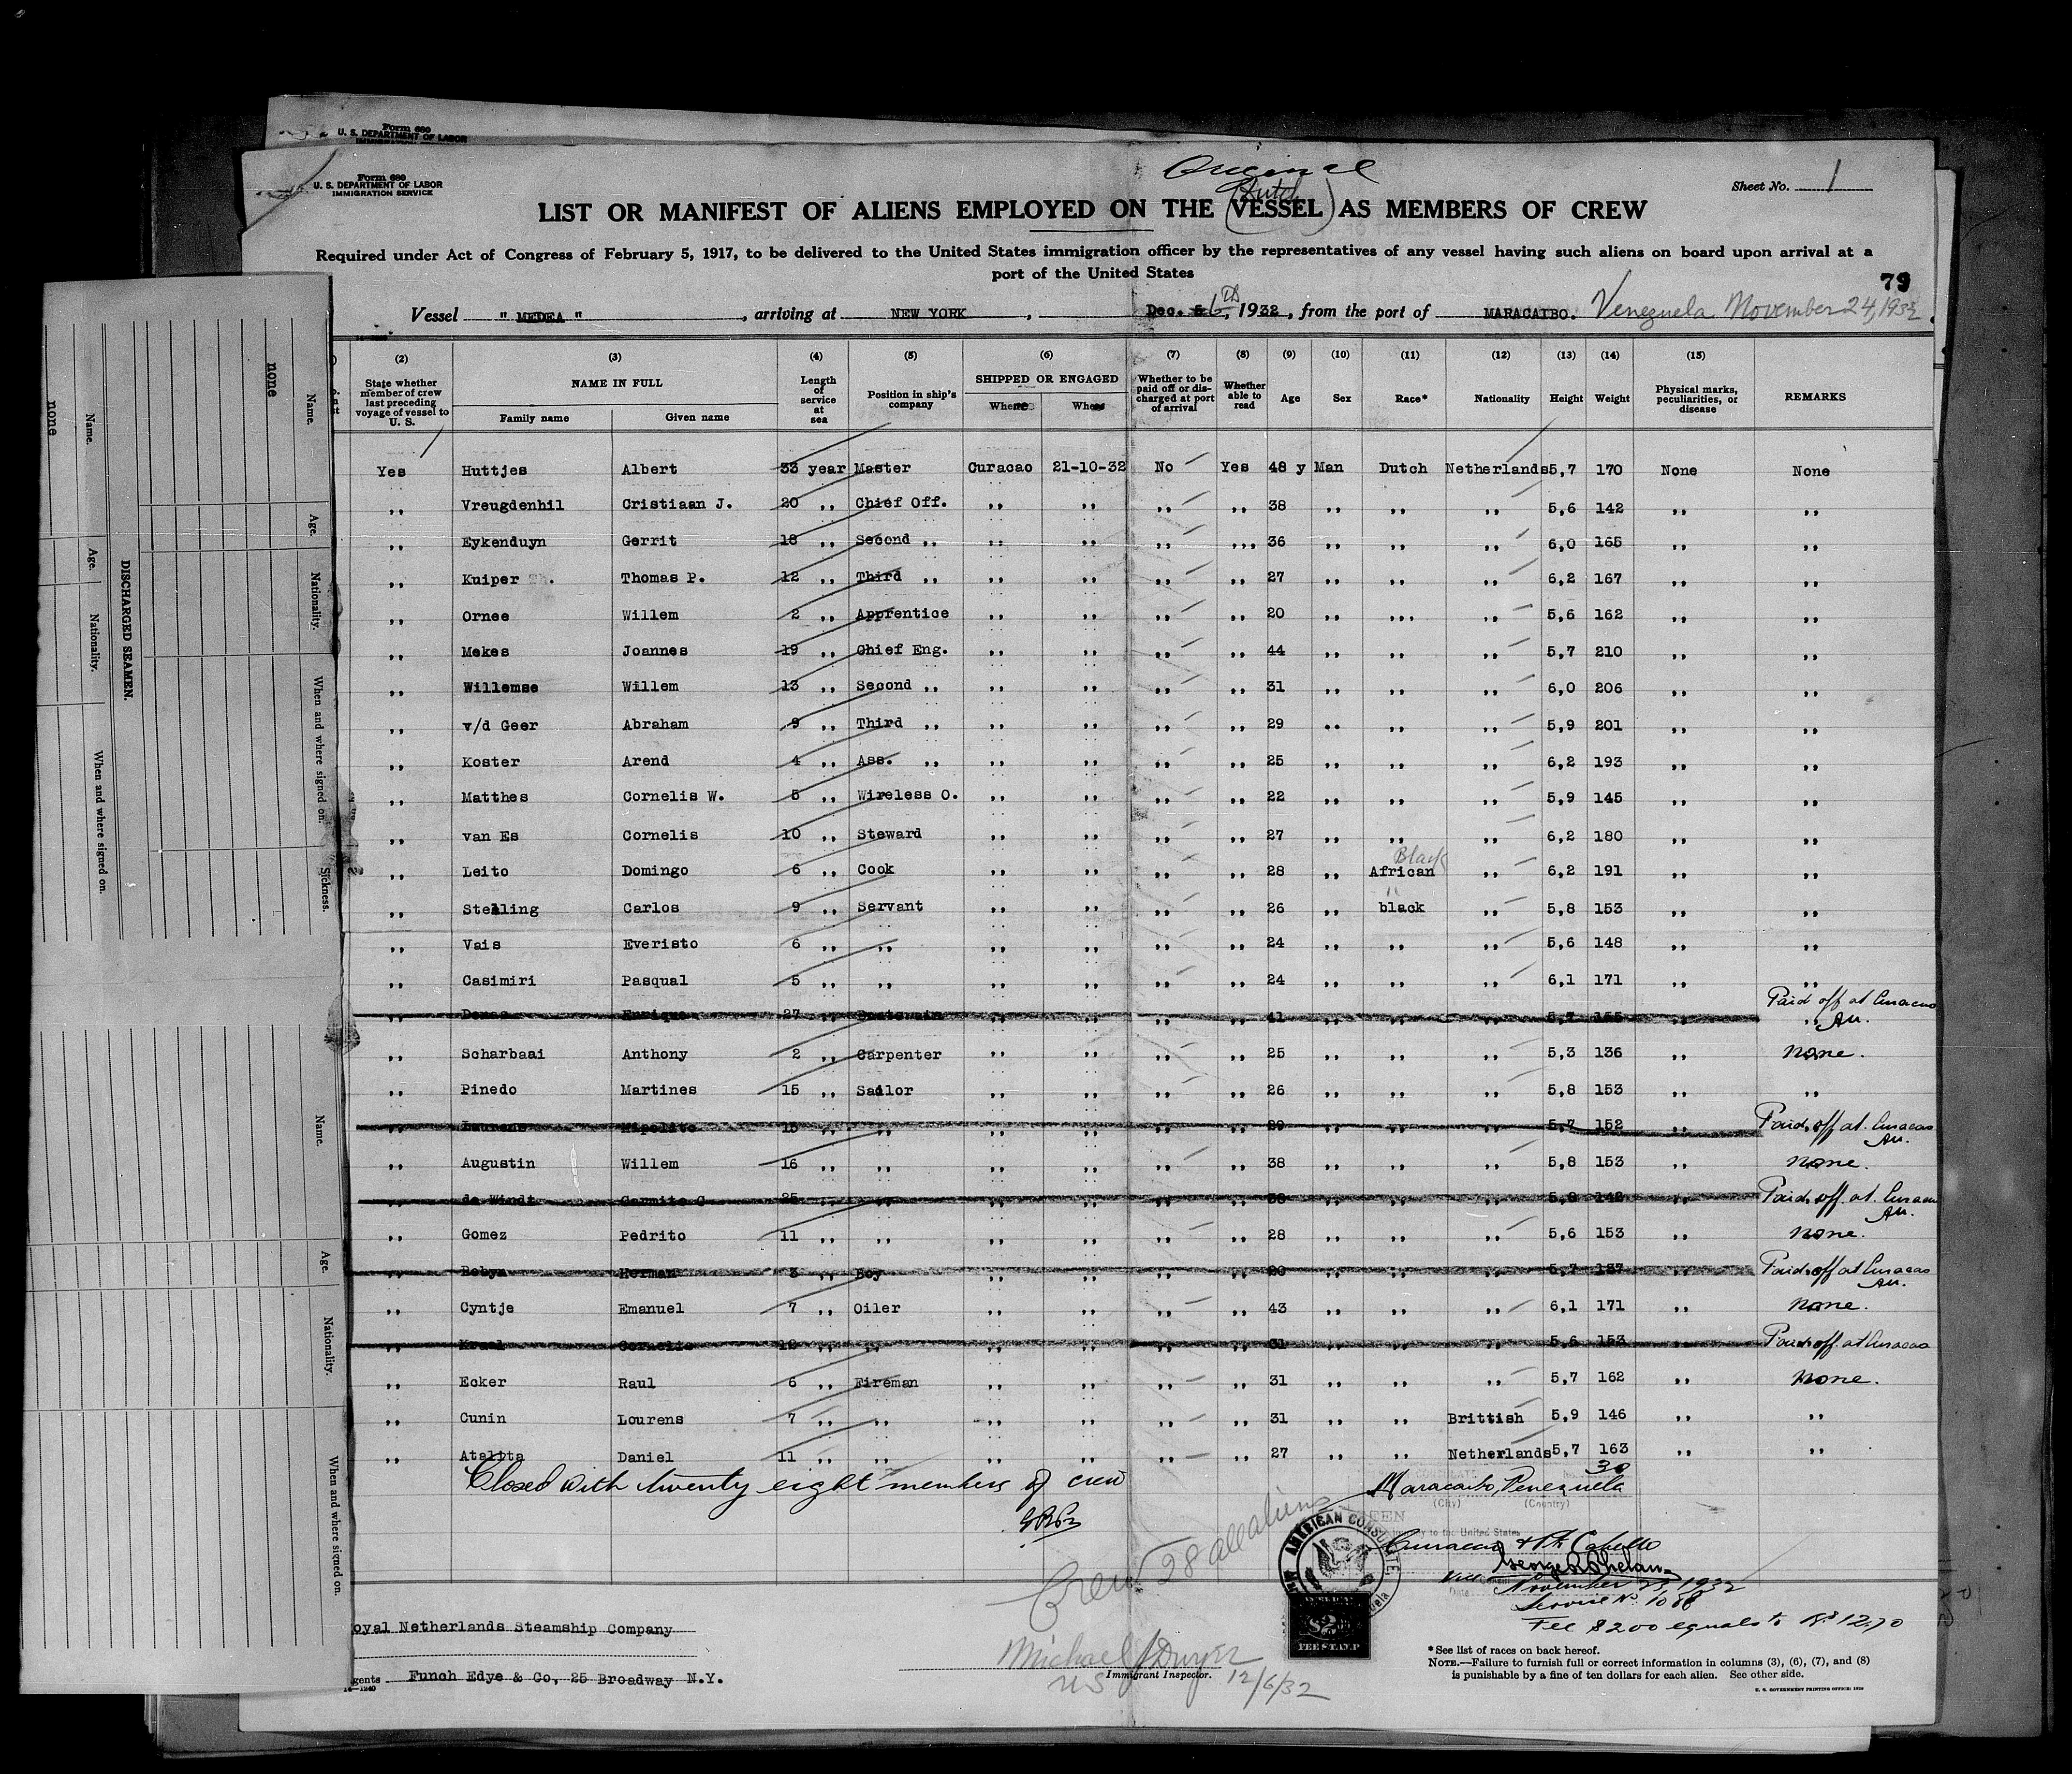 Form 680
U. S. DEPARTMENT OF LABOR
Form 680
U. S. DEPARTMENT OF LABOR
IMMIGRATION SERVICE
Original
(Dutch)
Sheet No. 1
LIST OR MANIFEST OF ALIENS EMPLOYED ON THE VESSEL AS MEMBERS OF CREW
Required under Act of Congress of February 5, 1917, to be delivered to the United States immigration officer by the representatives of any vessel having such aliens on board upon arrival at a
port of the United States
79
Vessel " MEDEA ", arriving at NEW YORK, Dec. 6th, 1932, from the port of MARACAIBO. Venezuela November 24, 1932
(2) (3) (4) (5) (6) (7) (8) (9) (10) (11) (12) (13) (14) (15)
State whether member of crew last preceding voyage of vessel to U. S. NAME IN FULL Family name Given name Length of service at sea Position in ship's company SHIPPED OR ENGAGED Where When Whether to be paid off or discharged at port of arrival Whether able to read Age Sex Race* Nationality Height Weight Physical marks, peculiarities, or disease REMARKS
Yes Huttjes Albert 33 year Master Curacao 21-10-32 No Yes 48 y Man Dutch Netherlands 5,7 170 None None
,, Vreugdenhil Cristiaan J. 20 ,, Chief Off. ,, ,, ,, ,, 38 ,, ,, ,, 5,6 142 ,, ,,
,, Eykenduyn Gerrit 18 ,, Second ,, ,, ,, ,, ,,, 36 ,, ,, ,, 6,0 165 ,, ,,
,, Kuiper Thomas P. 12 ,, Third ,, ,, ,, ,, ,, 27 ,, ,, ,, 6,2 167 ,, ,,
,, Ornee Willem 2 ,, Apprentice ,, ,, ,, ,, 20 ,, ,,, ,, 5,6 162 ,, ,,
,, Mekes Joannes 19 ,, Chief Eng. ,, ,, ,, ,, 44 ,, ,, ,, 5,7 210 ,, ,,
,, Willemse Willem 13 ,, Second ,, ,, ,, ,, ,, 31 ,, ,, ,, 6,0 206 ,, ,,
,, v/d Geer Abraham 9 ,, Third ,, ,, ,, ,, ,, 29 ,, ,, ,, 5,9 201 ,, ,,
,, Koster Arend 4 ,, Ass. ,, ,, ,, ,, ,, 25 ,, ,, ,, 6,2 193 ,, ,,
,, Matthes Cornelis W. 5 ,, Wireless O. ,, ,, ,, ,, 22 ,, ,, ,, 5,9 145 ,, ,,
,, van Es Cornelis 10 ,, Steward ,, ,, ,, ,, 27 ,, ,, ,, 6,2 180 ,, ,,
Black
,, Leito Domingo 6 ,, Cook ,, ,, ,, ,, 28 ,, African ,, 6,2 191 ,, ,,
,, Stelling Carlos 9 ,, Servant ,, ,, ,, ,, 26 ,, black ,, 5,8 153 ,, ,,
,, Vais Everisto 6 ,, ,, ,, ,, ,, ,, 24 ,, ,, ,, 5,6 148 ,, ,,
,, Casimiri Pasqual 5 ,, ,, ,, ,, ,, ,, 24 ,, ,, ,, 6,1 171 ,, ,,
,, Enrique 27 ,, ,, ,, ,, ,, 41 ,, ,, ,, 5,7 155 ,, ,, Paid off at Curacao
,, Scharbaai Anthony 2 ,, Carpenter ,, ,, ,, ,, 25 ,, ,, ,, 5,3 136 ,, none.
,, Pinedo Martines 15 ,, Sailor ,, ,, ,, ,, 26 ,, ,, ,, 5,8 153 ,, ,,
,, Hipolito 15 ,, ,, ,, ,, ,, ,, 29 ,, ,, ,, 5,7 152 ,, Paid off at Curacao
,, Augustin Willem 16 ,, ,, ,, ,, ,, ,, 38 ,, ,, ,, 5,8 153 ,, none.
,, de Windt 25 ,, ,, ,, ,, ,, ,, ,, ,, ,, ,, Paid off at Curacao
,, Gomez Pedrito 11 ,, ,, ,, ,, ,, ,, 28 ,, ,, ,, 5,6 153 ,, none.
,, Herman 3 ,, Boy ,, ,, ,, ,, 20 ,, ,, ,, 5,7 137 ,, Paid off at Curacao
,, Cyntje Emanuel 7 ,, Oiler ,, ,, ,, ,, 43 ,, ,, ,, 6,1 171 ,, none.
,, Cornelis 12 ,, ,, ,, ,, ,, ,, 31 ,, ,, ,, 5,6 153 ,, Paid off at Curacao
,, Ecker Raul 6 ,, Fireman ,, ,, ,, ,, 31 ,, ,, ,, 5,7 162 ,, none.
,, Cunin Lourens 7 ,, ,, ,, ,, ,, ,, 31 ,, ,, Brittish 5,9 146 ,, ,,
,, Atalita Daniel 11 ,, ,, ,, ,, ,, ,, 27 ,, ,, Netherlands 5,7 163 ,, ,,
Closed with twenty eight members of crew
30
Maracaibo, Venezuela
(City) (Country)
Crew 28 all aliens
AMERICAN CONSULATE
Curacao & Pt. Cabello
George R Phelan
November 23, 1932
Service No. 1088
Fee $2.00 equals to Bs 12.70
$2
FEE STAMP
oyal Netherlands Steamship Company
gents Funch Edye & Co, 25 Broadway N.Y.
Michael J Dwyer
Immigrant Inspector.
U S 12/6/32
*See list of races on back hereof.
NOTE.—Failure to furnish full or correct information in columns (3), (6), (7), and (8)
is punishable by a fine of ten dollars for each alien. See other side.
U. S. GOVERNMENT PRINTING OFFICE: 1929
DISCHARGED SEAMEN.
Name. Age. Nationality. When and where signed on. Sickness.
none
Name. Age. Nationality. When and where signed on.
none
Name. Age. Nationality. When and where signed on.